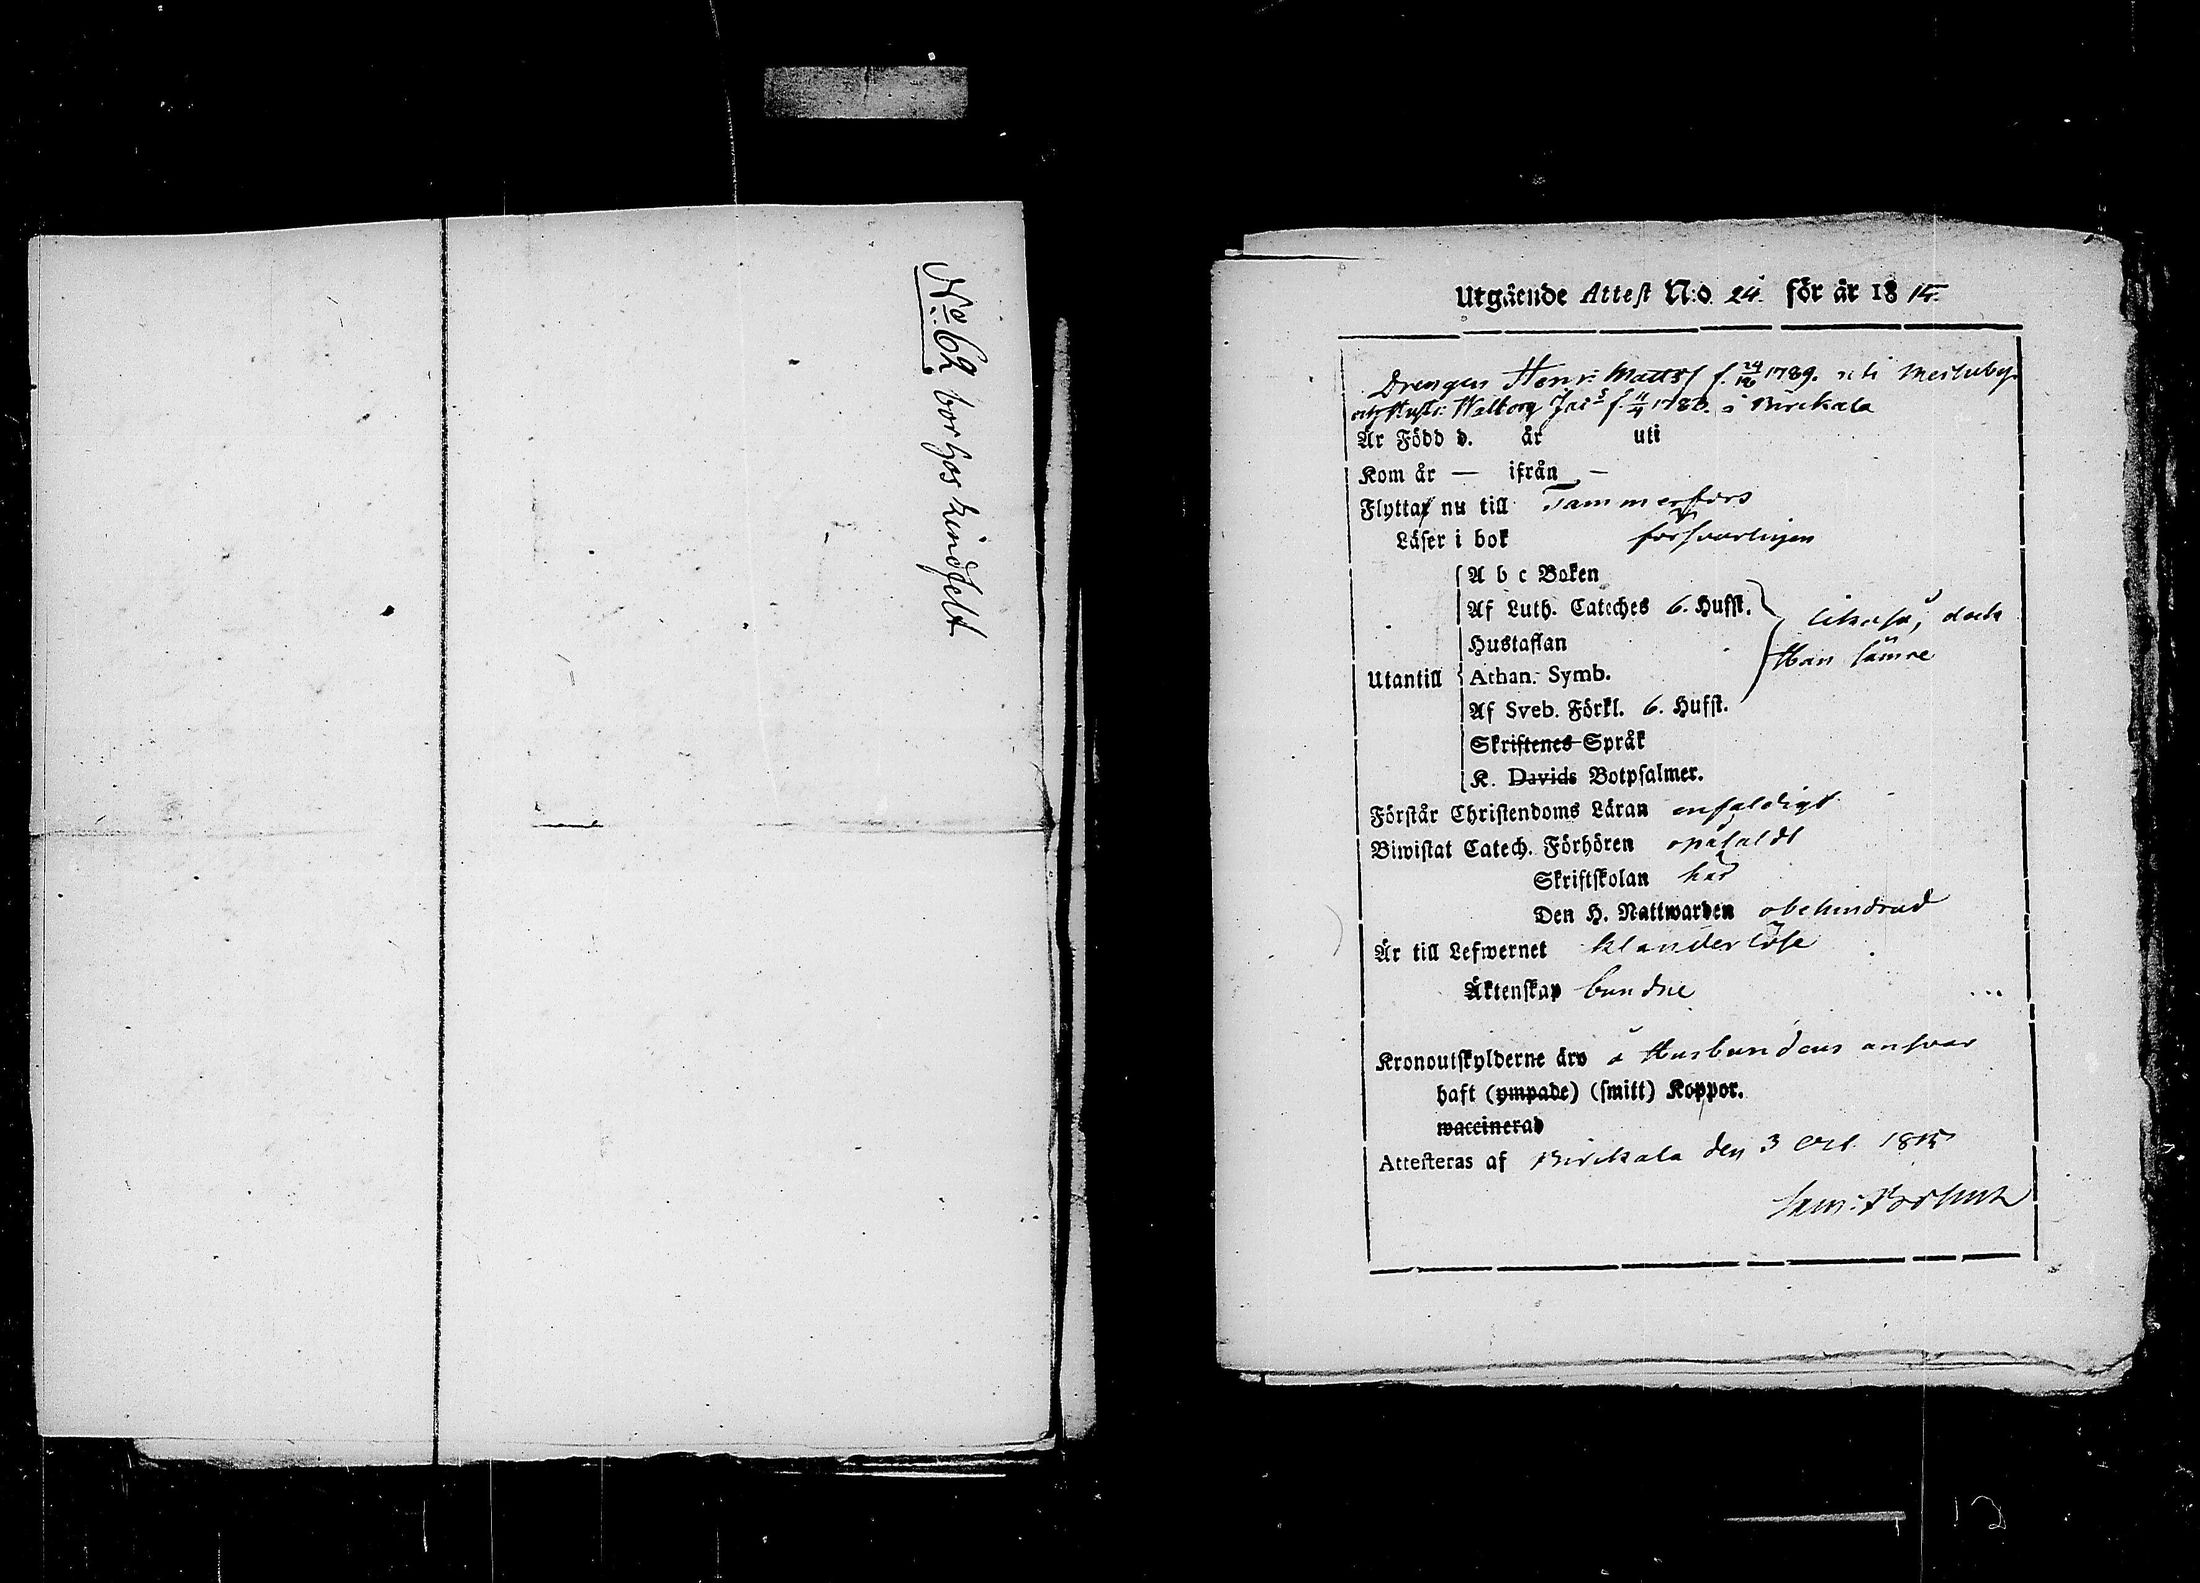 No 62 bor hos Lindfelt
Utgående Attest N:o 24. för år 18 15.
Drengen Henr: Matts f. 24/12 1789. uti
och Hustr: Walborg Jac f. 11/4 178 i Birckala
Är Född d. år uti
Kom år — ifrån —
Flyttar nu till Tammerfors
Läser i bok försvarligen
A b c Boken
Af Luth. Cateches 6. Hufst. likaså, dock
Hustaflan Han sämre
Utantill Athan. Symb.
Af Sveb. Förkl. 6. Hufst.
Skriftenes Språk
K. Davids Botpsalmer.
Förstår Christendoms Läran enfaldigt
Biwistat Catech. Förhören
Skriftskolan
Den H. Nattwarden obehindrad
Är till Lefwernet klanderlöse
Äktenskap bundne
Kronoutskylderne äro å Husbondens ansvar
haft (ympade) (smitt) Koppor.
waccinerad
Attesteras af Birckala den 3 Oct. 1815
12